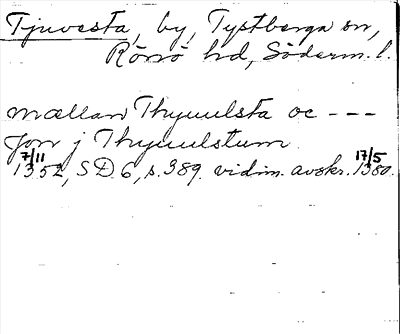 Tjuvesta, by, Tystberga sn,
Rönö hd, Söderm. l.
mællan Thyuulsta oc ---
Jon j Thyuulstum.
7/11 17/5
1352, SD. 6, s. 389. vidim. avskr. 1380.